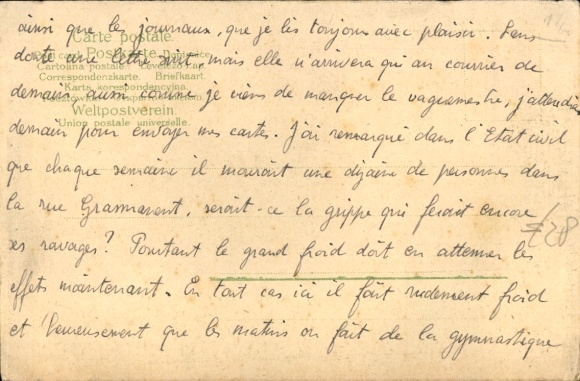 ainsi que les journaux, que je lis toujours avec plaisir. Sans
Carte postale
doute une lettre suit, mais elle n'arrivera qu'au courrier de
Cartolina postale
Correspondenzkarte. Briefkaart.
demain. Aussi comme je viens de manquer le vaguemestre, j'attendrai
Karta korespondencyjna.
Weltpostverein.
demain pour envoyer mes cartes. J'ai remarqué dans l'Etat civil
Union postale universelle.
que chaque semaine il mourait une dizaine de personnes dans
la rue, serait-ce la grippe qui ferait encore
ses ravages? Pourtant le grand froid doit en attenuer les
effets maintenant. En tout cas ici il fait rudement froid
et heureusement que les matins on fait de la gymnastique